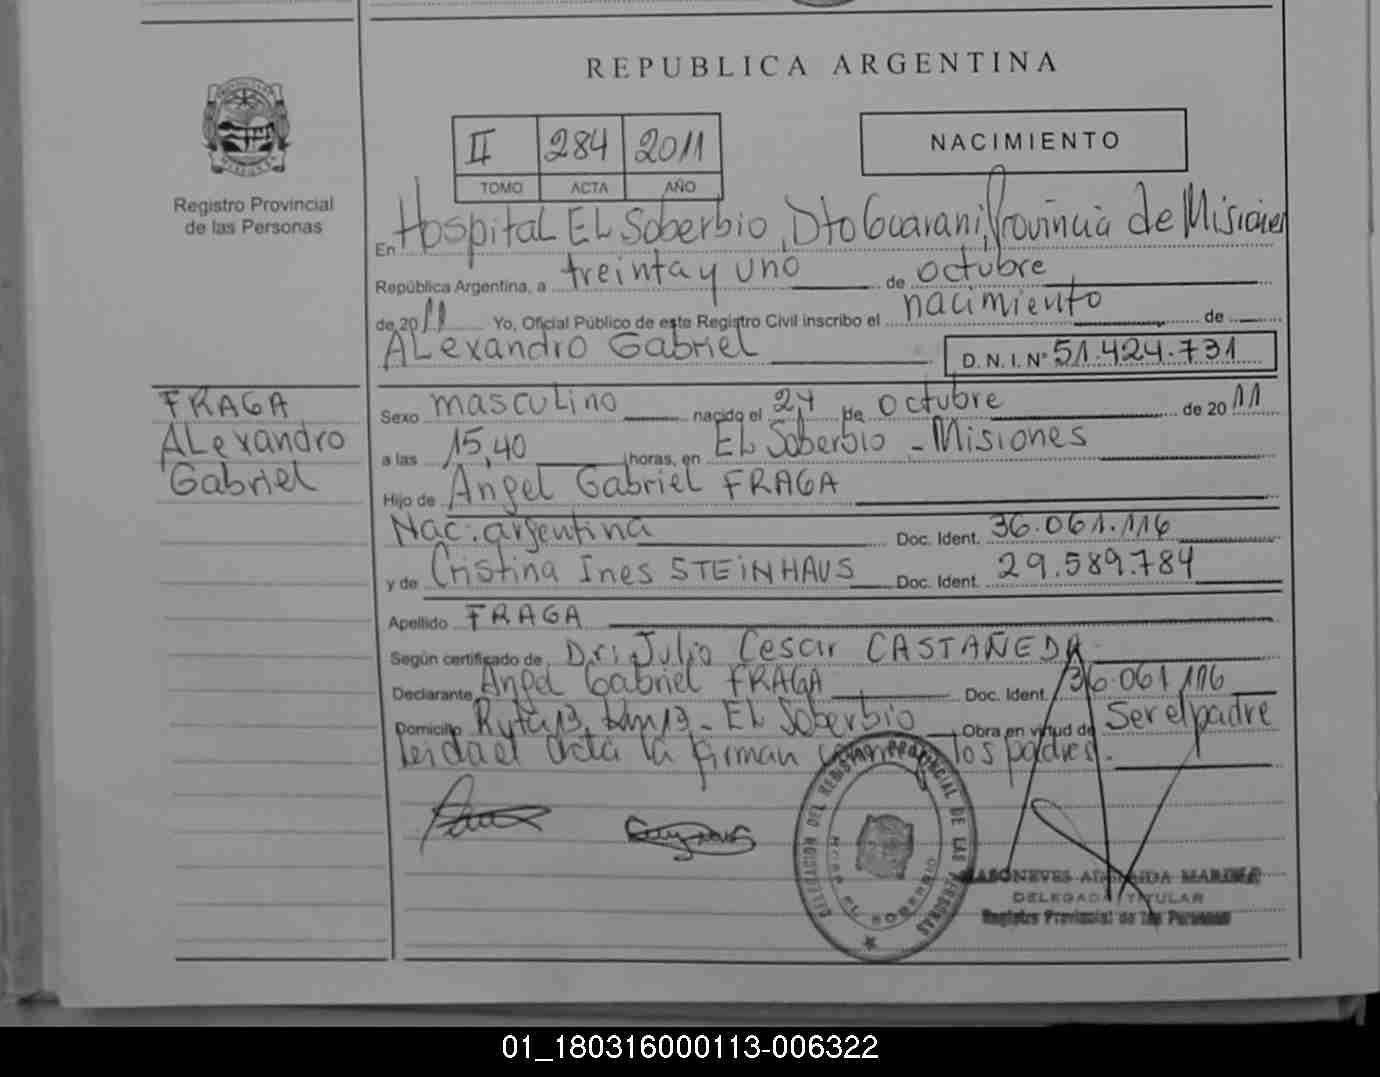 REPUBLICA ARGENTINA
Registro Provincial
de las Personas
II 284 2011
TOMO ACTA AÑO
NACIMIENTO
En Hospital EL Soberbio, Dto Guarani, Provincia de Misiones
República Argentina, a treinta y uno de octubre
de 2011 Yo, Oficial Público de este Registro Civil inscribo el nacimiento de
ALexandro Gabriel D. N. I. Nº 51.424.731
FRAGA
ALexandro
Gabriel
Sexo masculino nacido el 24 de octubre de 2011
a las 15,40 horas, en EL Soberbio - Misiones
Hijo de Angel Gabriel FRAGA
Nac: argentina Doc. Ident. 36.061.116
y de Cristina Ines STEINHAUS Doc. Ident. 29.589.784
Apellido FRAGA
Según certificado de Dr: Julio Cesar CASTAÑEDA
Declarante Angel Gabriel FRAGA Doc. Ident. 36.061.116
Domicilio Ruta 13, km 13 - EL Soberbio Obra en virtud de Ser el padre
leida el acta la firman los padres.
DELEGACION DEL REGISTRO PROVINCIAL DE LAS PERSONAS
EL SOBERBIO
DELEGADA TITULAR
Registro Provincial de las Personas
01_180316000113-006322